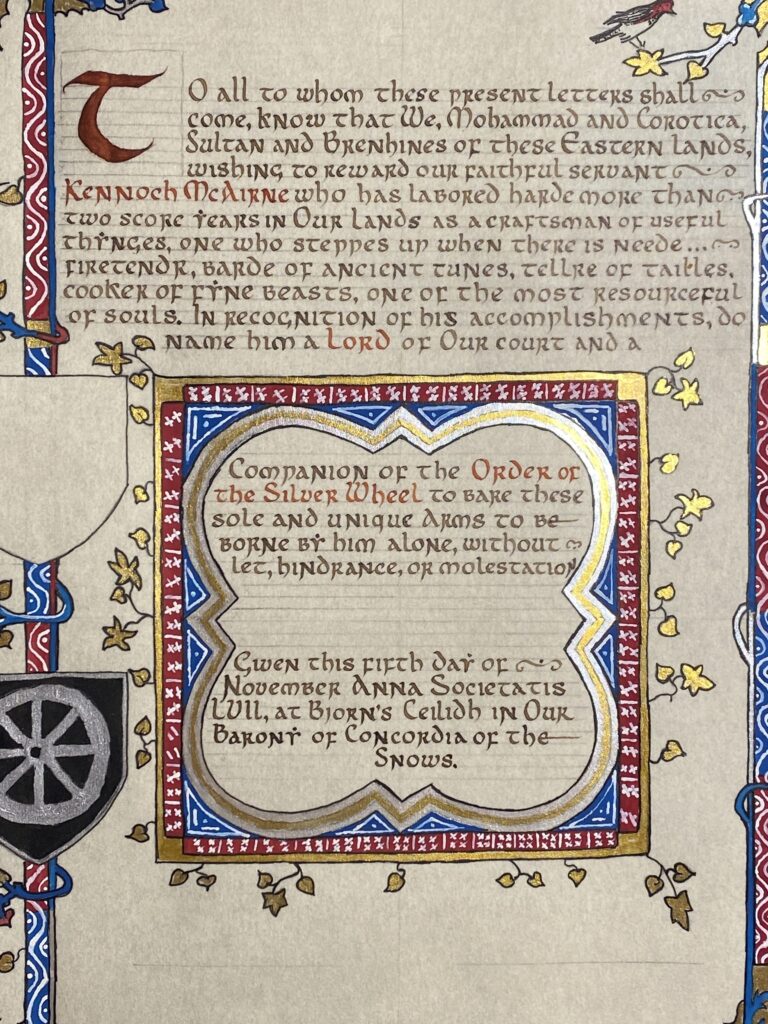 To all to whom these present letters shall
come, know that We, Mohammad and Corotica,
Sultan and Brenhines of these Eastern Lands,
wishing to reward our faithful servant
Kennoch McAirne who has labored harde more than
two score ÿears in Our Lands as a craftsman of useful
thÿnges, one who steppes up when there is neede...
firetendr, barde of ancient tunes, tellre of taitles,
cooker of fÿne beasts, one of the most resourceful
of souls. In recognition of his accomplishments, do
name him a Lord of Our court and a
Companion of the Order of
the Silver Wheel to bare these
sole and unique Arms to be
borne bÿ him alone, without
let, hindrance, or molestation
Given this fifth daÿ of
November Anna Societatis
LVII, at Bjorn's Ceilidh in Our
Baronÿ of Concordia of the
Snows.